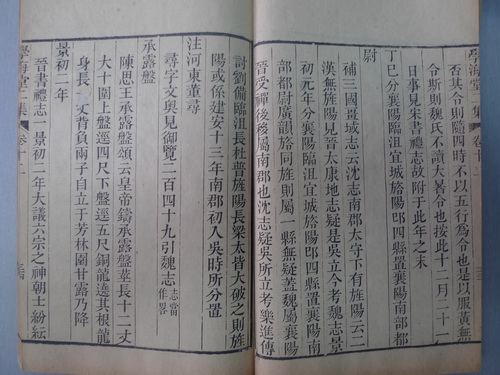 學海堂二集 卷十二
否其令則隨四時不以五行爲令也是以服黃無
令斯則魏氏不讀大暑令也按此十二月二十一
日事見晉書禮志故附于此年之末
丁巳分襄陽臨沮宜城旍陽邔四縣置襄陽南部都
尉
補三國畺域志云沈志南郡太守下有旌陽云二
漢無旌陽見晉太康地志疑是吳立今考魏志景
初元年分襄陽臨沮宜城旍陽邔四縣置襄陽南
部都尉廣韻旍同旌則屬一縣無疑葢魏屬襄陽
晉受禪後移屬南郡也沈志疑吳所立考樂進傳
討劉備臨沮長杜普旌陽長梁太皆大破之則旌
陽或係建安十三年南郡初入吳時所分置
注河東董尋
尋字文奥見御覽二百四十九引魏志志當作畧
承露盤
陳思王承露盤頌云皇帝鑄承露盤莖長十二丈
大十圍上盤逕四尺下盤逕五尺銅龍遶其根龍
身長一丈背負兩子自立于芳林園甘露乃降
景初二年
晉書禮志一景初二年大議六宗之神朝士紛紜
學海堂二集 卷十二